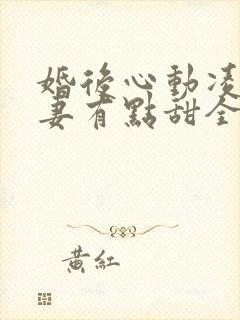 婚後心動凌
妻有點甜全
黃紅